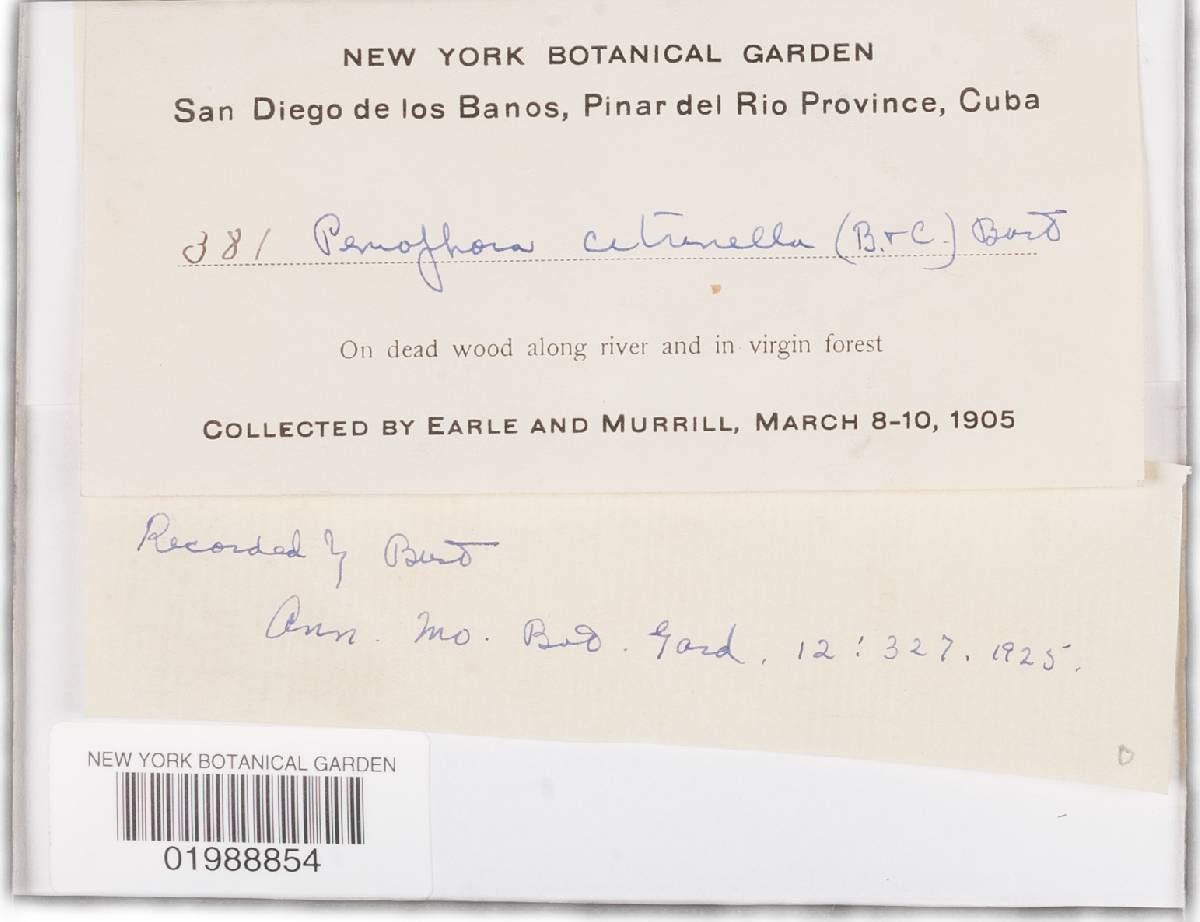 NEW YORK BOTANICAL GARDEN
San Diego de los Banos, Pinar del Rio Province, Cuba
381 Peniophora citrinella (B. & C.) Burt
On dead wood along river and in virgin forest
COLLECTED BY EARLE AND MURRILL, MARCH 8-10, 1905
Recorded by Burt
Ann. Mo. Bot. Gard. 12: 327. 1925.
NEW YORK BOTANICAL GARDEN
01988854